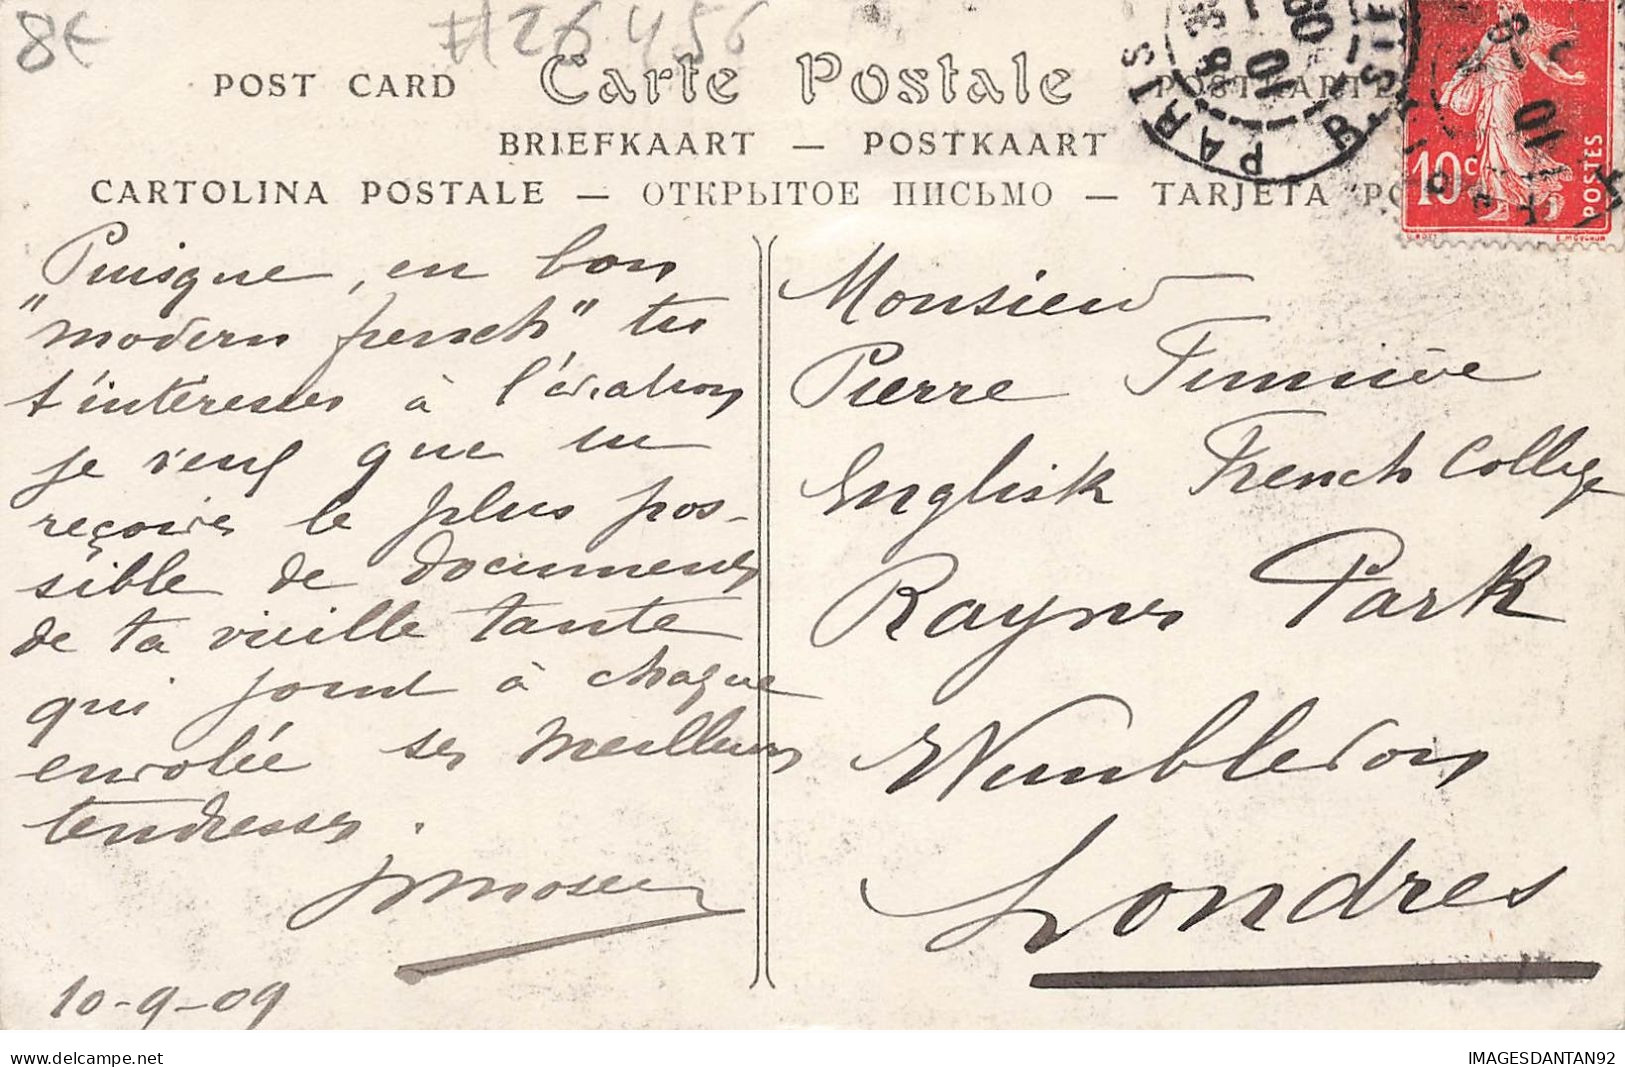 8€ #26456
POST CARD Carte Postale POSTKARTE
BRIEFKAART — POSTKAART
CARTOLINA POSTALE — ОТКРЫТОЕ ПИСЬМО — TARJETA PO
PARIS
10
10c POSTES
E. MOUCHON
Puisque, en bon
"modern french" tu
t'intéresses à l'aviation
je veux que tu
reçoives le plus pos-
sible de documents
de ta vieille tante
qui joint à chaque
envolée ses meilleures
tendresses.
10-9-09
Monsieur
Pierre
English French College
Raynes Park
Wimbledon
Londres
delcampe.net
IMAGESDANTAN92